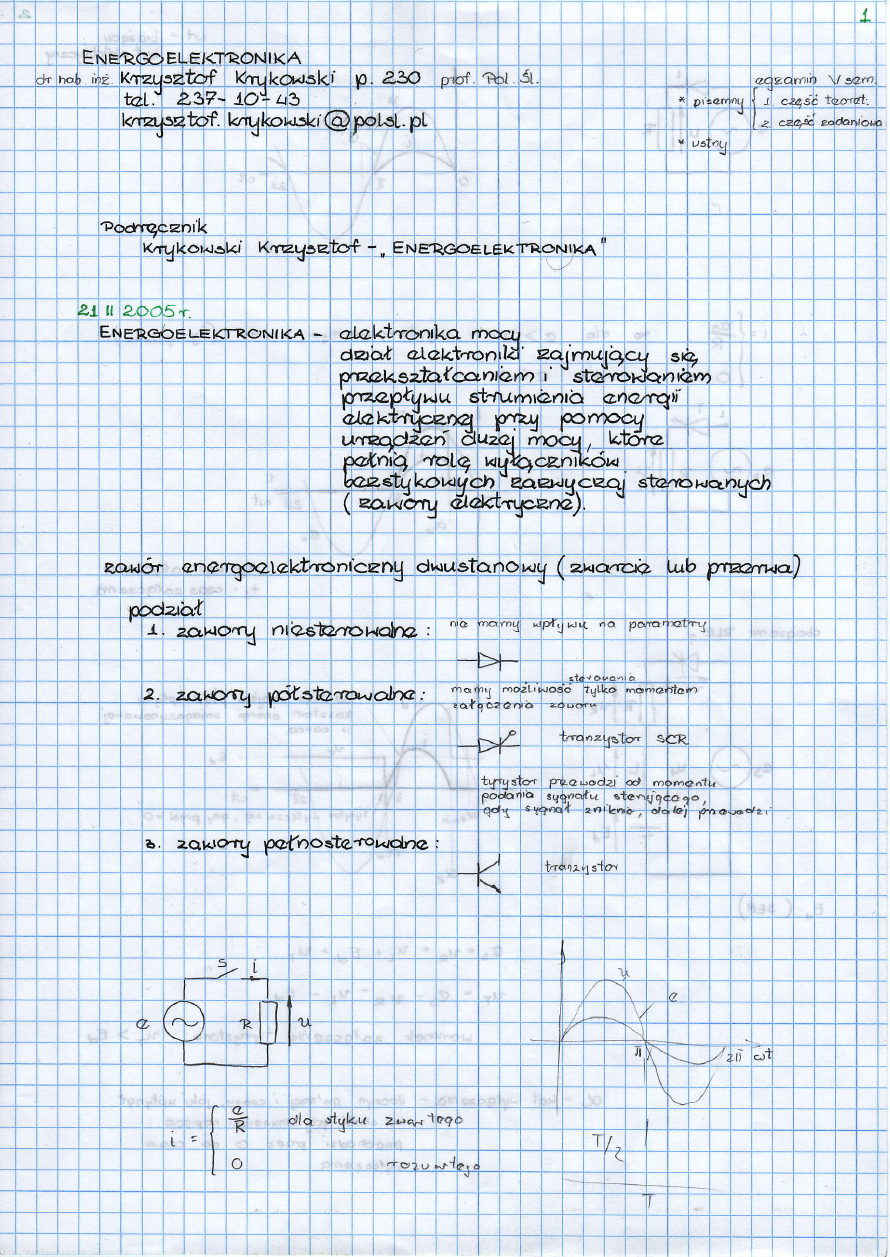 1
ENERGOELEKTRONIKA
dr hab. inż. Krzysztof Krykowski p. 230 prof. Pol. Śl.
tel. 237-10-43
krzysztof.krykowski@polsl.pl
egzamin V sem.
* pisemny { 1. część teoret.
2. część zadaniowa
* ustny
Podręcznik
Krykowski Krzysztof - „ENERGOELEKTRONIKA"
21 II 2005r.
ENERGOELEKTRONIKA - elektronika mocy
dział elektroniki zajmujący się
przekształcaniem i sterowaniem
przepływu strumienia energii
elektrycznej przy pomocy
urządzeń dużej mocy, które
pełnią rolę wyłączników
bezstykowych zazwyczaj sterowanych
(zawory elektryczne).
zawór energoelektroniczny dwustanowy (zwarcie lub przerwa)
podział
1. zawory niesterowalne: nie mamy wpływu na parametry
sterowania
2. zawory półsterowalne: mamy możliwość tylko momentem
załączenia zaworu
tranzystor SCR
tyrystor przewodzi od momentu
podania sygnału sterującego,
gdy sygnał zniknie, dalej przewodzi
3. zawory pełnosterowalne:
tranzystor
S i
e R u
u
e
π 2π ωt
i = { e/R dla styku zwartego
0 rozwartego
T/2
T